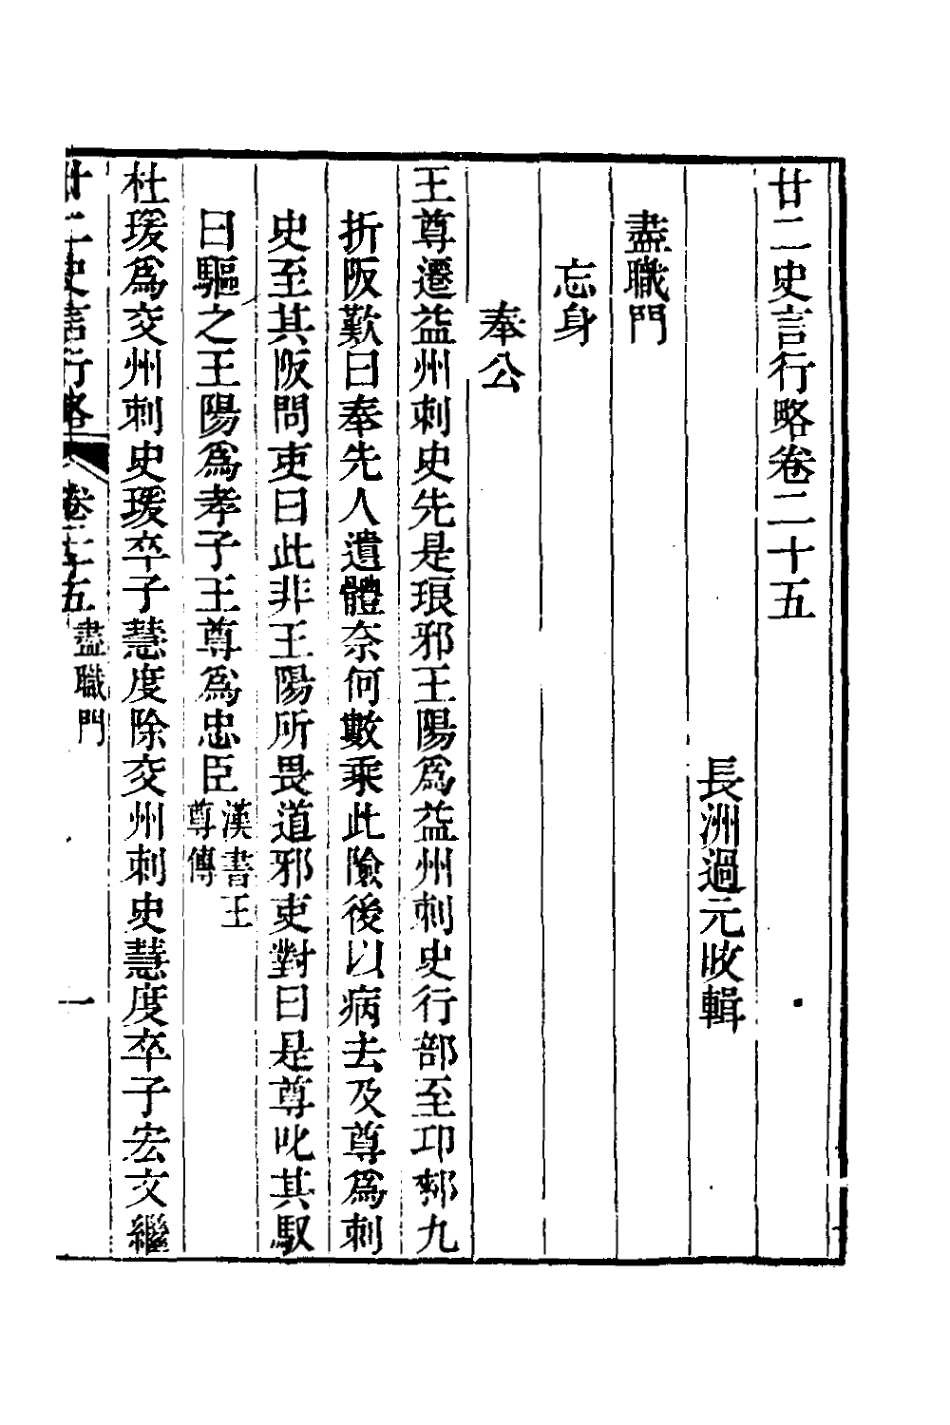 廿二史言行略卷二十五
長洲過元旼輯
盡職門
忘身
奉公
王尊遷益州刺史先是琅邪王陽爲益州刺史行部至邛郲九
折阪歎曰奉先人遺體奈何數乘此險後以病去及尊爲刺
史至其阪問吏曰此非王陽所畏道邪吏對曰是尊叱其馭
曰驅之王陽爲孝子王尊爲忠臣漢書王尊傳
杜瑗爲交州刺史瑗卒子慧度除交州刺史慧度卒子宏文繼
廿二史言行略 卷二十五 盡職門 一